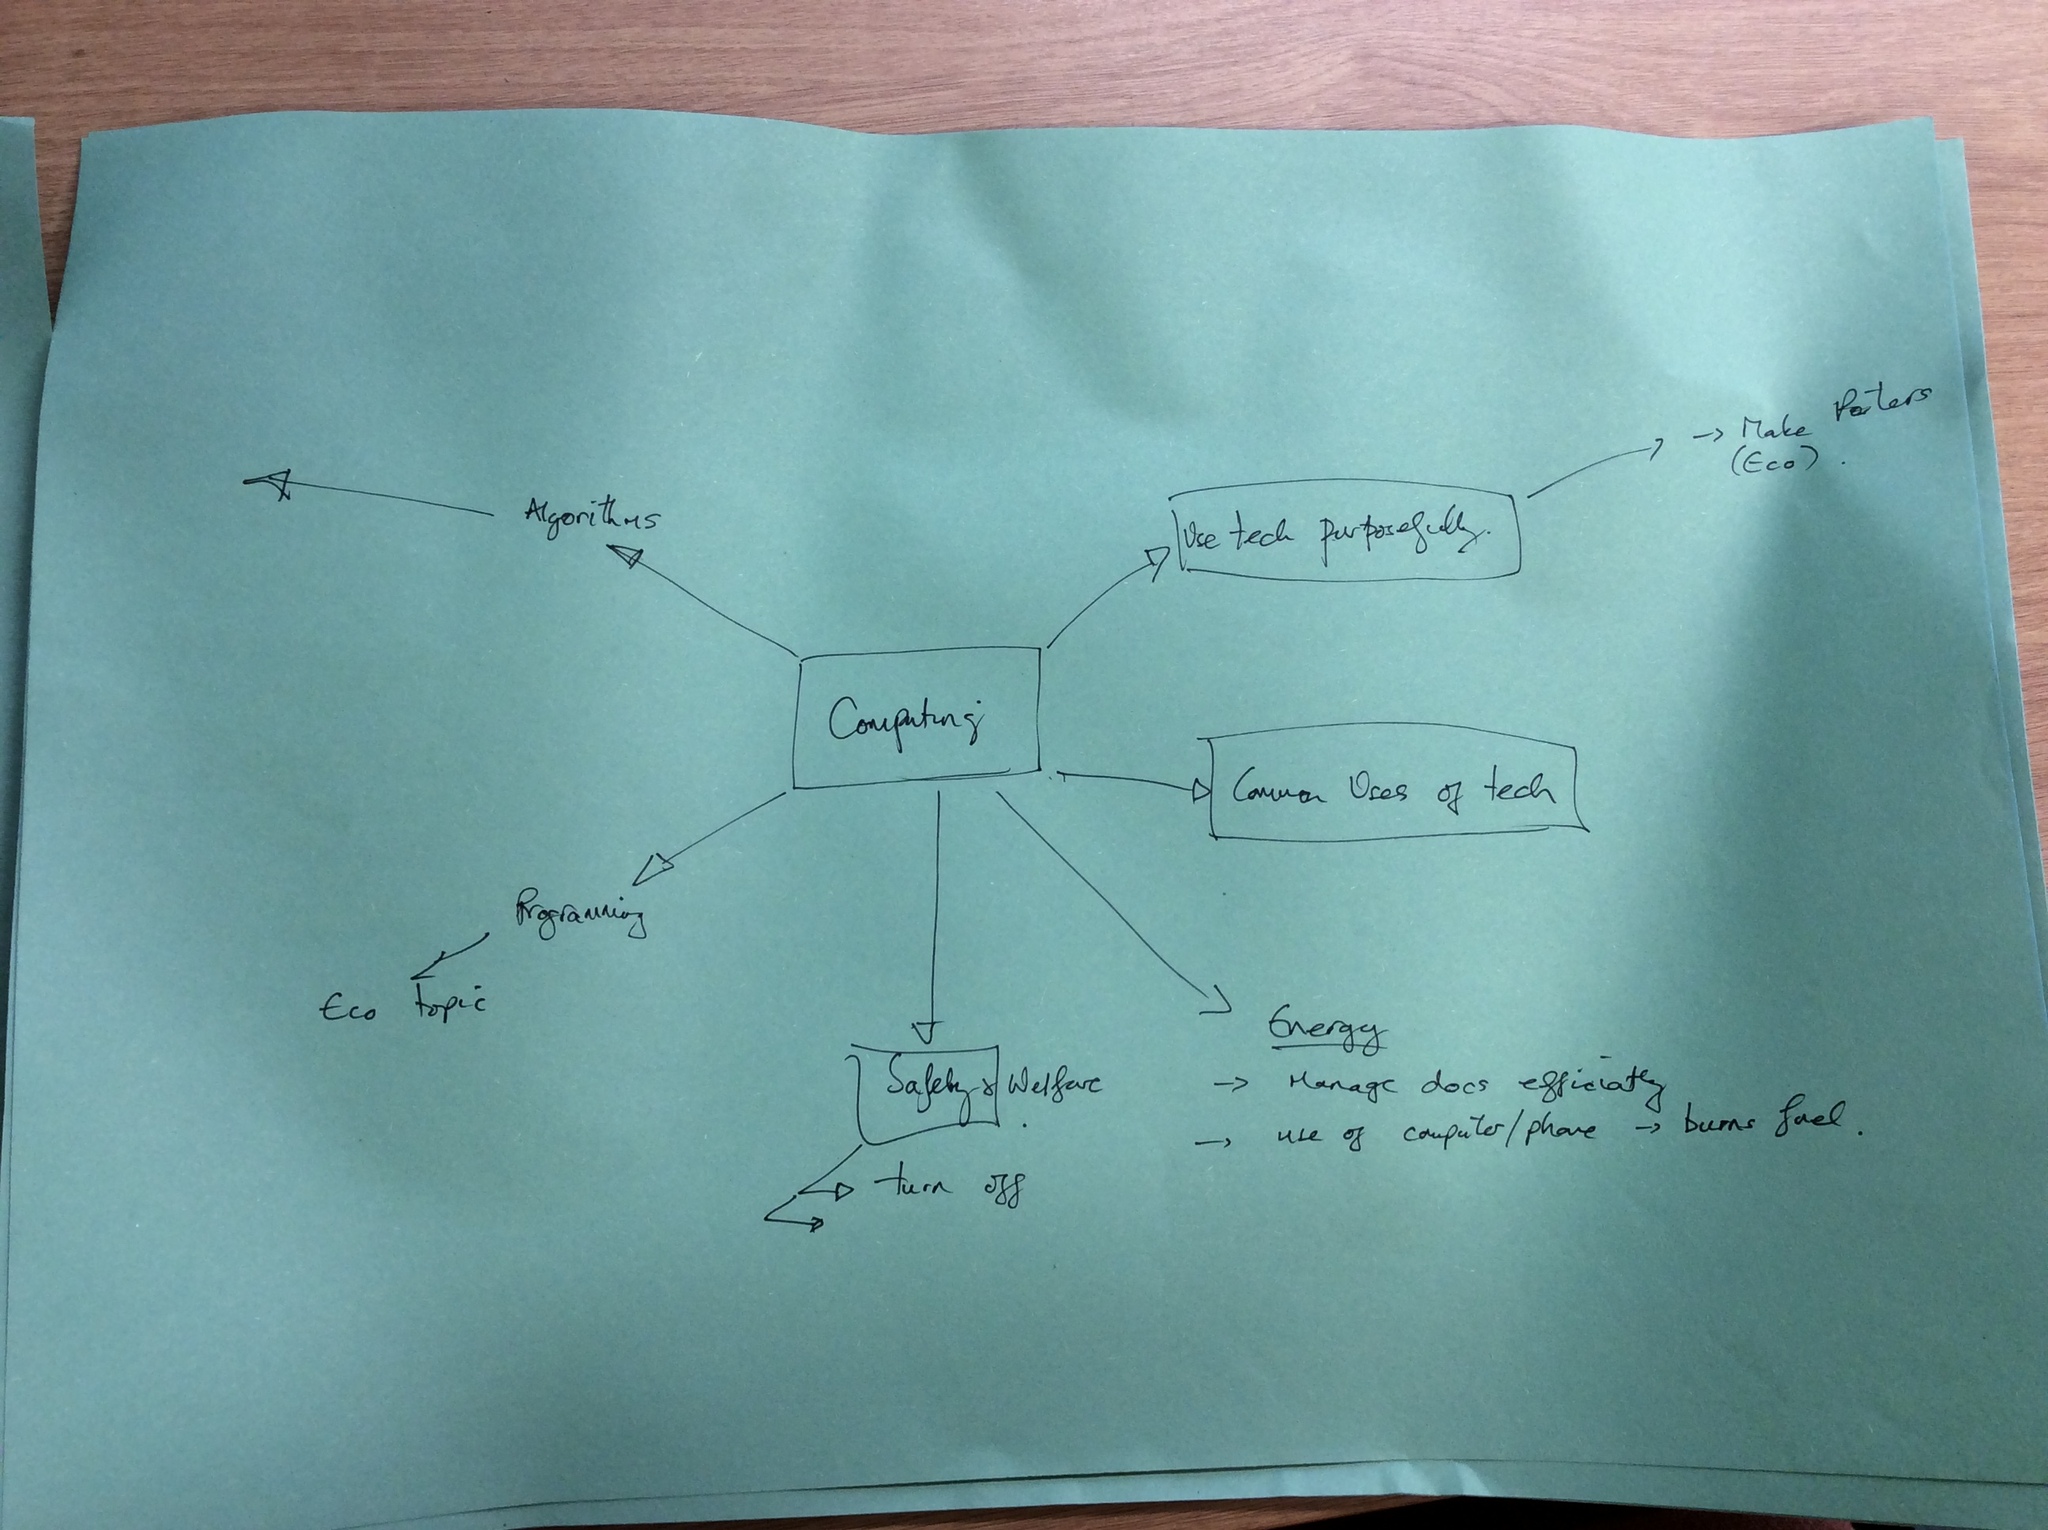 → Make Posters
(Eco).
Algorithms
Use tech purposefully.
Computing
Common Uses of tech
Programming
Eco topic
Safety & Welfare.
→ turn off
Energy
→ Manage docs efficiatly
→ use of computer/phone → burns fuel.